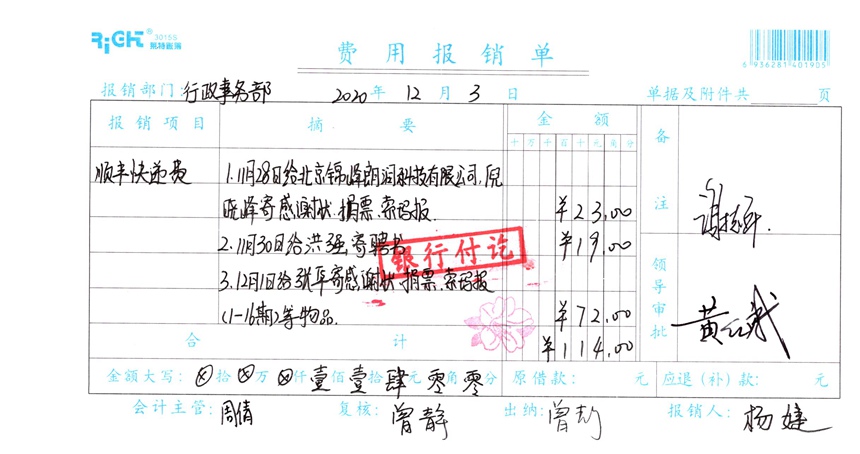 RiGHT 30155
莱特镭淘
费用报销单
6 936281 401905
报销部门：行政事务部 2020年12月3日 单据及附件共 页
报销项目 摘要 金额 备注
十万千百十元角分
顺丰快递费 1.11月28日给北京锦峰朗润科技有限公司,倪
晓峰寄感谢状、捐票、索玛报. ¥23.00
2.11月30日给洪强寄聘书 ¥19.00
银行付讫
3.12月1日给张华寄感谢状、捐票、索玛报
(1-16期)等物品. ¥72.00
领导审批 黄红斌
合计 ¥114.00
金额大写：⊗拾⊗万⊗仟壹佰壹拾肆元零角零分 原借款： 元 应退（补）款： 元
会计主管：周倩 复核：曾静 出纳：曾 报销人：杨婕